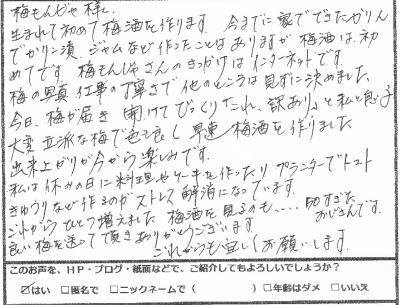 梅もんじゃ様
生まれて初めて梅酒を作ります 今までに家でできたかりん
でかりん漬、ジャムなど作ったことはありますが 梅酒は初
めてです。 梅もんじゃさんのきっかけはインターネットです。
梅の写真 仕事の丁寧さで他のところは見ずに決めました。
今日、梅が届き 開けてびっくり「これ、訳あり」と私と息子
大変立派な梅で色も良く 早速 梅酒を作りました
出来上がりが今から楽しみです。
私は休みの日に料理やケーキを作ったり プランターでトマト
きゅうりなど作るのがストレス解消になっています。
これからひとつ増えました 梅酒を見るのも.... 50すぎた
おじさんです。
良い梅を送って頂きありがとうございます
これからも宜しくお願いします。
このお声を、HP・ブログ・紙面などで、ご紹介してもよろしいでしょうか?
☑はい □匿名で □ニックネームで( ) □年齢はダメ □いいえ